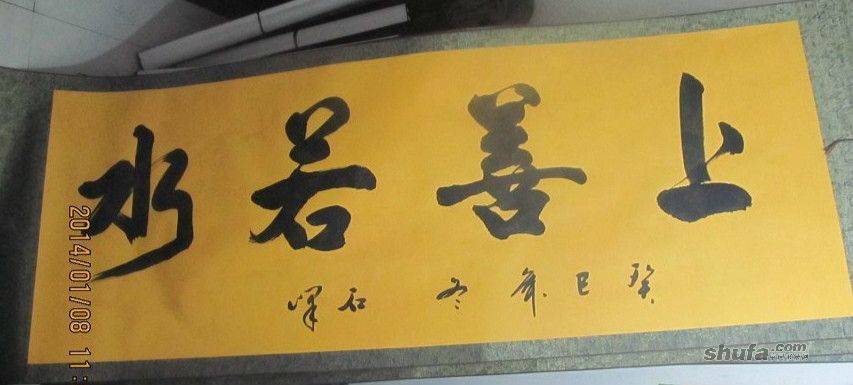 上善若水
癸巳年冬 石峄
2014/01/08 11:
shufa.com